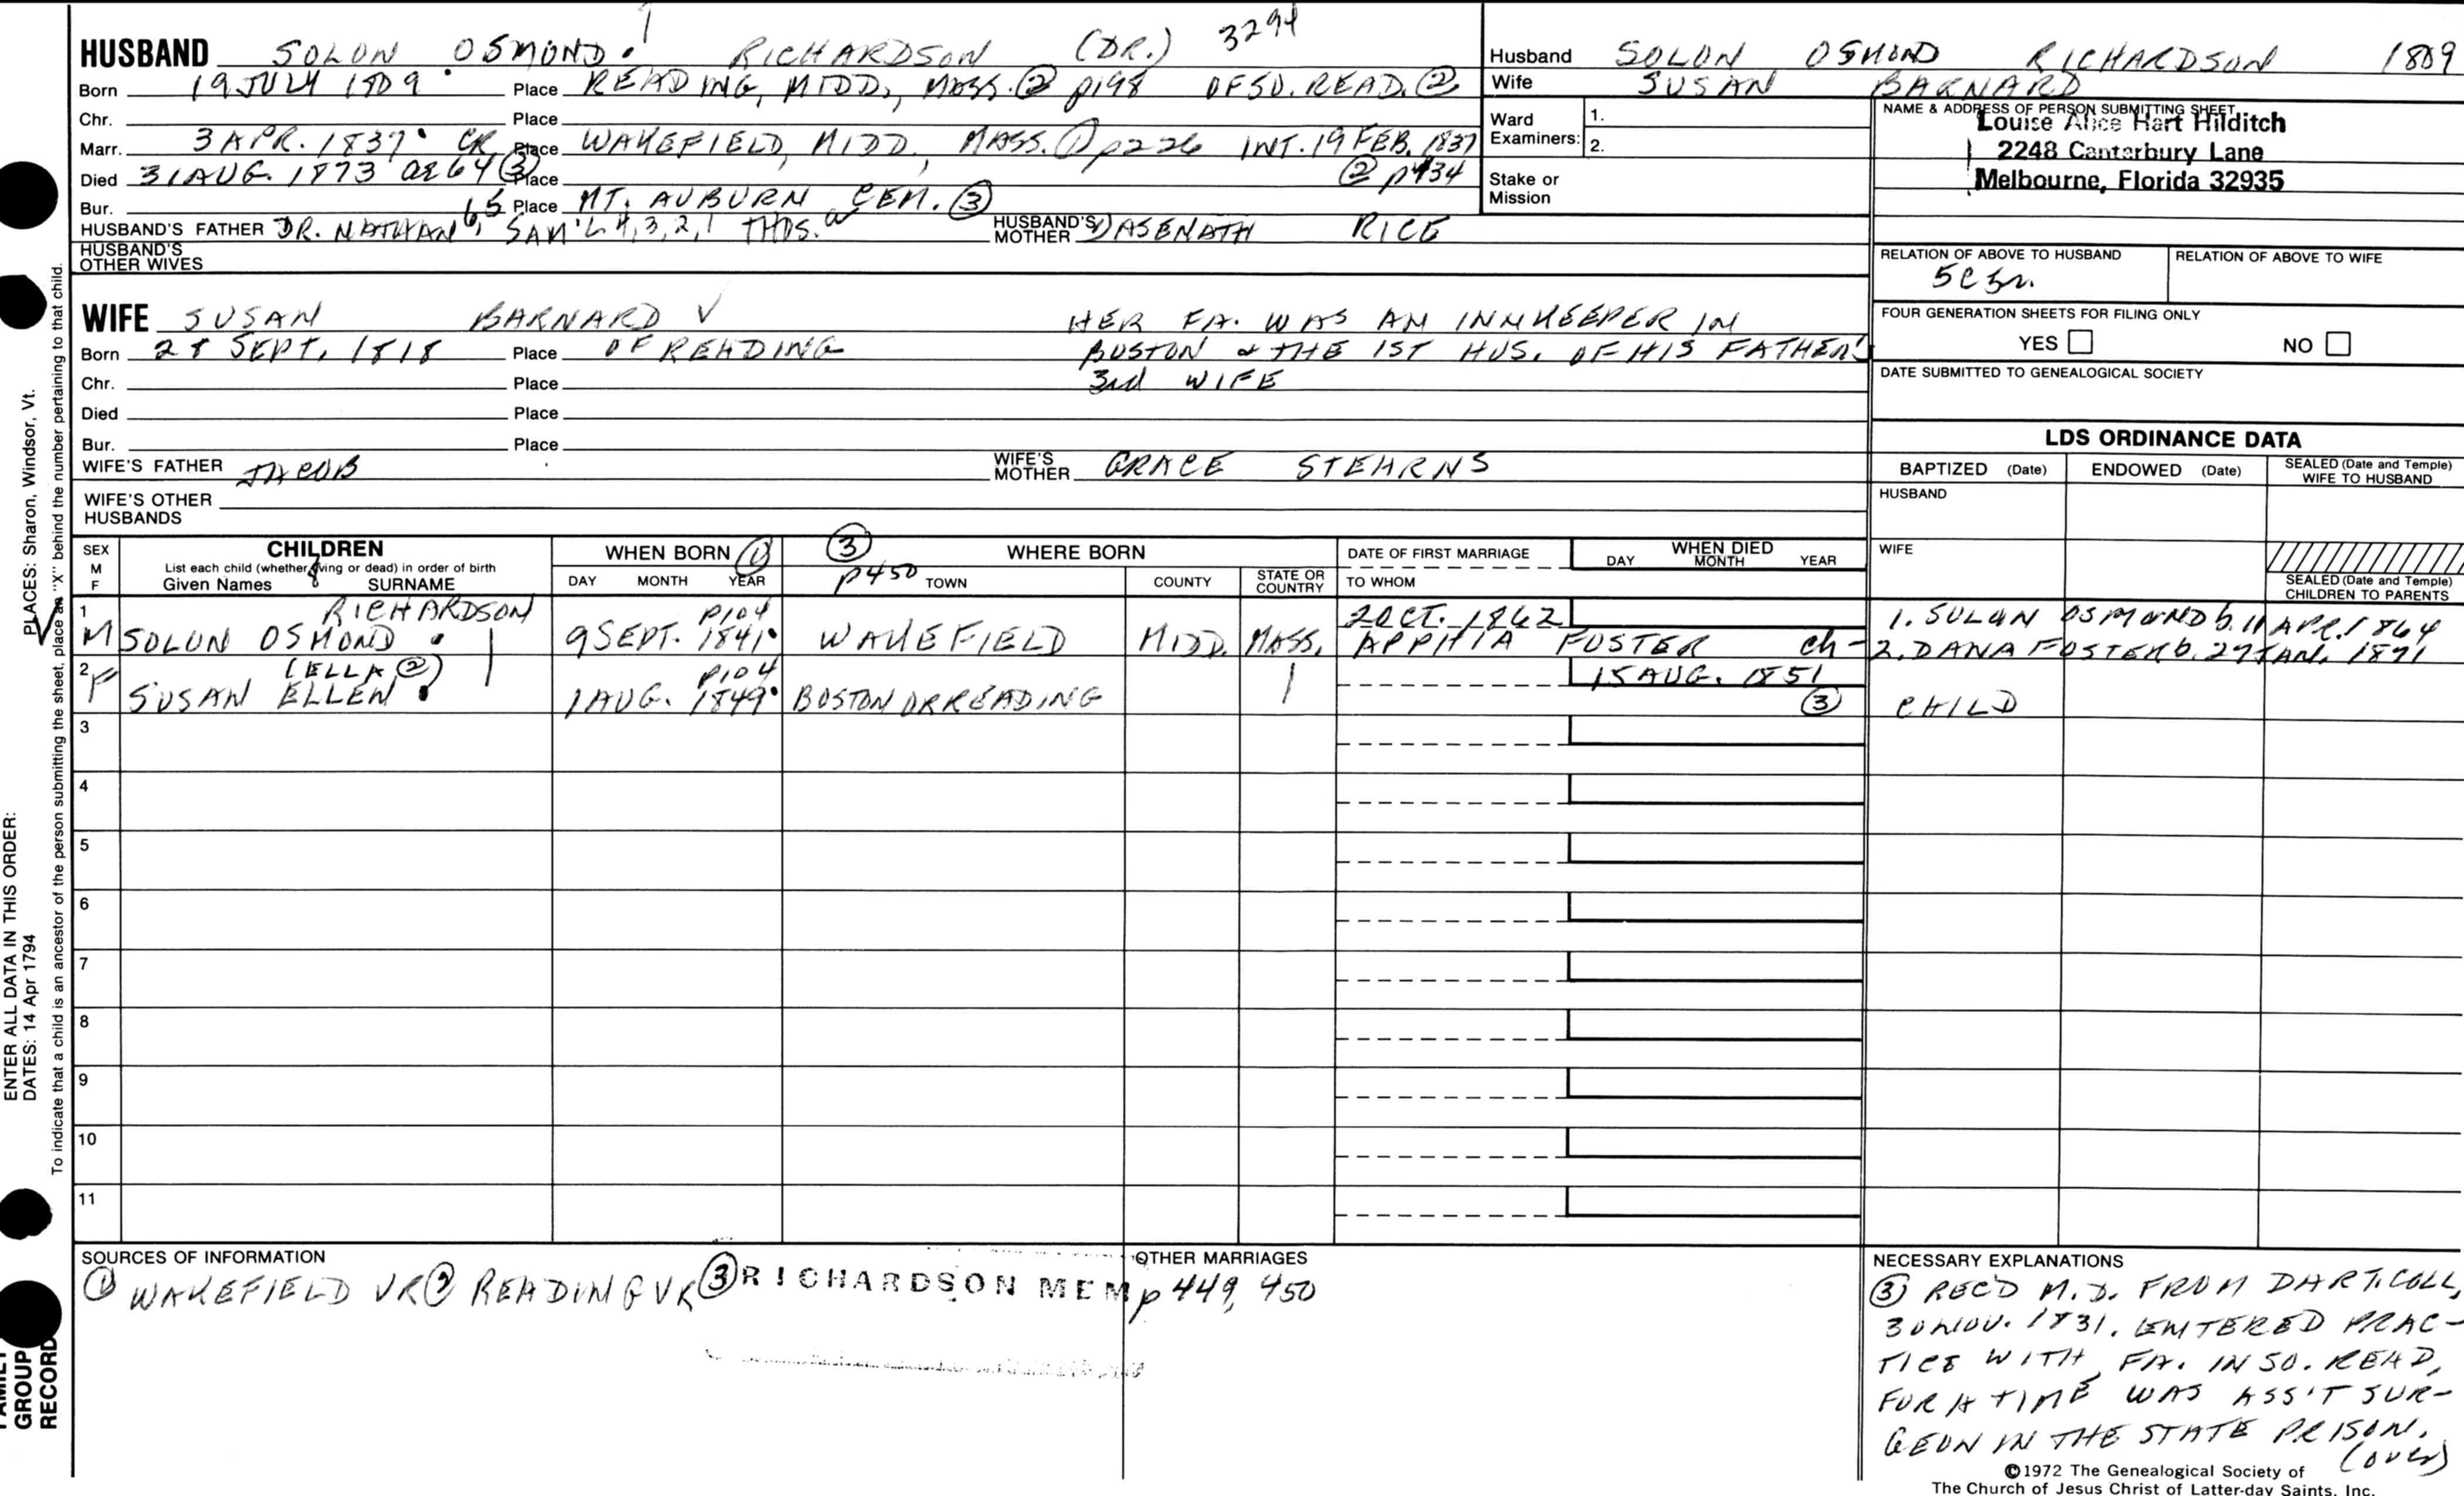 HUSBAND SOLON OSMOND. RICHARDSON (DR.) 3294
Born 19 JULY 1809 Place READING, MIDD., MASS. ② p198 OF SO. READ. ②
Chr. Place
Marr. 3 APR. 1837 CR Place WAKEFIELD, MIDD, MASS. ① p226 INT. 19 FEB. 1837
Died 31 AUG. 1873 ae 64 ③ Place ② p434
Bur. Place MT. AUBURN CEM. ③
HUSBAND'S FATHER DR. NATHAN 6, 5, SAM'L 4, 3, 2, 1 THOS. HUSBAND'S MOTHER ASENATH RICE
HUSBAND'S OTHER WIVES
Husband SOLON OSMOND RICHARDSON 1809
Wife SUSAN BARNARD
Ward Examiners: 1.
2.
Stake or Mission
NAME & ADDRESS OF PERSON SUBMITTING SHEET
Louise Alice Hart Hilditch
2248 Canterbury Lane
Melbourne, Florida 32935
RELATION OF ABOVE TO HUSBAND RELATION OF ABOVE TO WIFE
5C3r.
FOUR GENERATION SHEETS FOR FILING ONLY
YES NO
DATE SUBMITTED TO GENEALOGICAL SOCIETY
WIFE SUSAN BARNARD ✓ HER FA. WAS AN INNKEEPER IN
Born 28 SEPT. 1818 Place OF READING BOSTON & THE 1ST HUS. OF HIS FATHER'S
Chr. Place 3rd WIFE
Died Place
Bur. Place
WIFE'S FATHER JACOB WIFE'S MOTHER GRACE STEARNS
WIFE'S OTHER HUSBANDS
LDS ORDINANCE DATA
BAPTIZED (Date) ENDOWED (Date) SEALED (Date and Temple) WIFE TO HUSBAND
HUSBAND
WIFE
SEALED (Date and Temple) CHILDREN TO PARENTS
SEX M F CHILDREN WHEN BORN ① ③ WHERE BORN DATE OF FIRST MARRIAGE WHEN DIED
List each child (whether living or dead) in order of birth
Given Names 8 SURNAME DAY MONTH YEAR p450 TOWN COUNTY STATE OR COUNTRY TO WHOM DAY MONTH YEAR
1 RICHARDSON p104 2 OCT. 1862 1. SOLON OSMOND b. 11 APR. 1864
✓ M SOLON OSMOND 9 SEPT. 1841 WAKEFIELD MIDD. MASS. APPHIA FOSTER ch- 2. DANA FOSTER b. 27 JAN. 1871
2 (ELLA ②) p104 15 AUG. 1851
F SUSAN ELLEN 1 AUG. 1849 BOSTON OR READING ③ CHILD
3
4
5
6
7
8
9
10
11
SOURCES OF INFORMATION
① WAKEFIELD VR ② READING VR ③ RICHARDSON MEM p 449, 450
OTHER MARRIAGES
NECESSARY EXPLANATIONS
③ REC'D M.D. FROM DART. COLL,
30 NOV. 1831. ENTERED PRAC-
TICE WITH FA. IN SO. READ,
FOR A TIME WAS ASS'T SUR-
GEON IN THE STATE PRISON.
(over)
©1972 The Genealogical Society of
The Church of Jesus Christ of Latter-day Saints, Inc.
ENTER ALL DATA IN THIS ORDER:
DATES: 14 Apr 1794 PLACES: Sharon, Windsor, Vt.
To indicate that a child is an ancestor of the person submitting the sheet, place an "X" behind the number pertaining to that child.
FAMILY
GROUP
RECORD